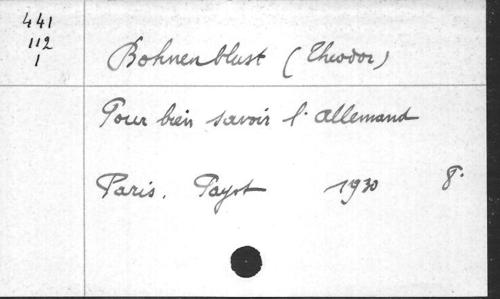 441
112
1
Bohnenblust (Theodor)
Pour bien savoir l'allemand
Paris. Payot 1930 8°